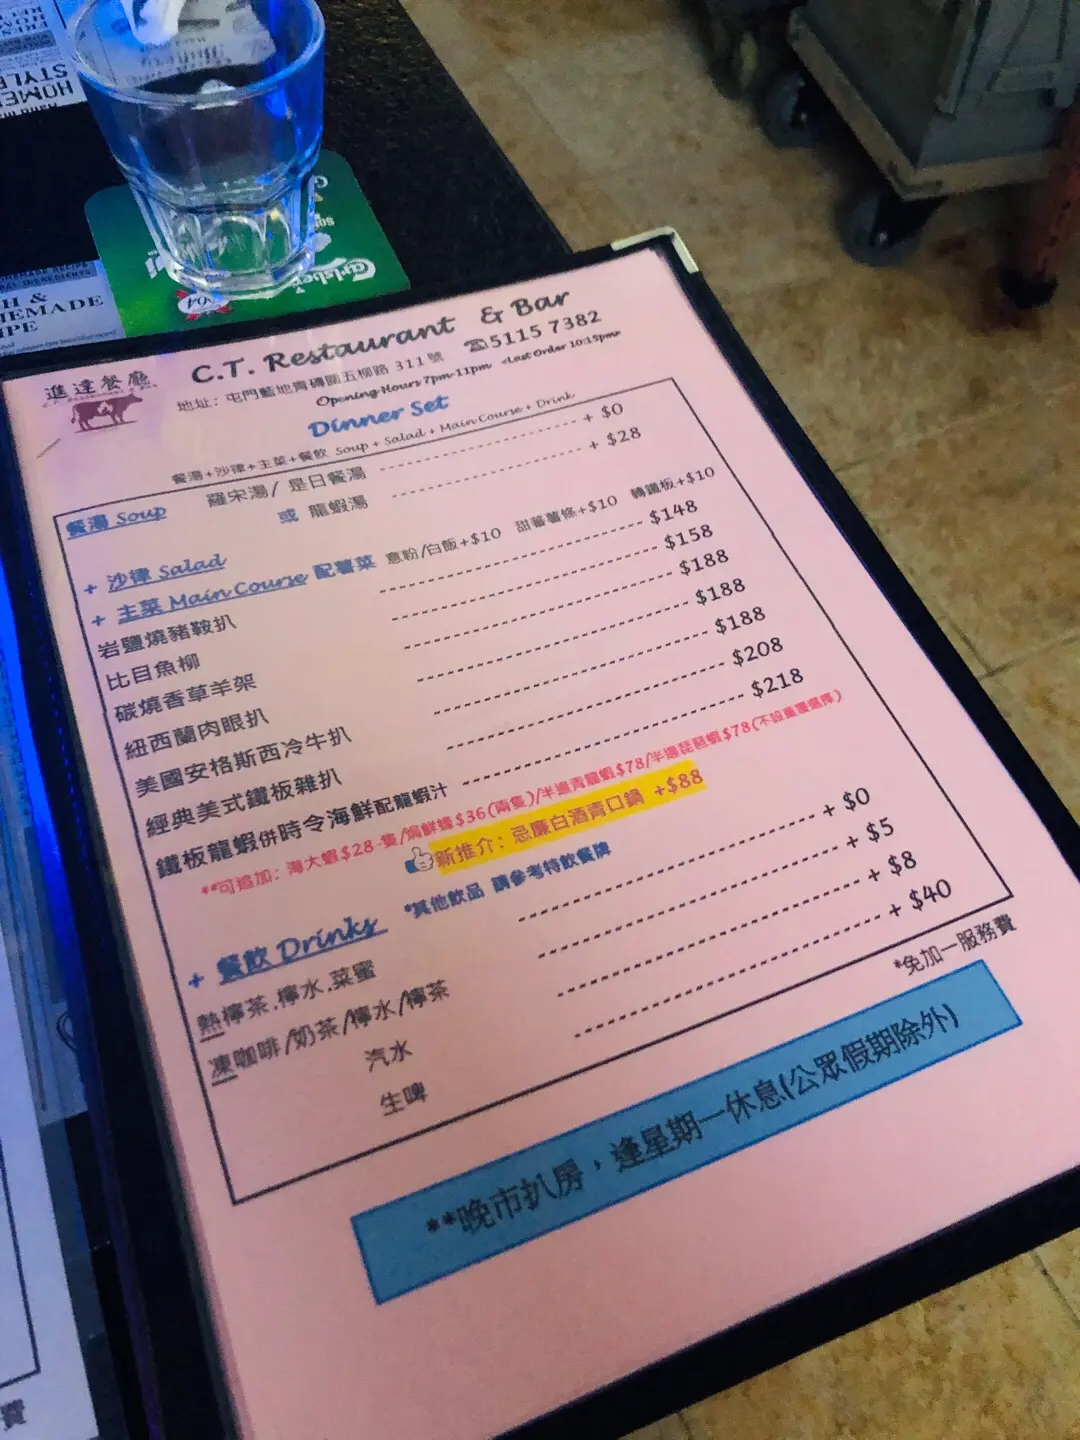 HOMEM
STYLE
H &
HEMADE
IPE
Carlsberg
進達餐廳
C.T. Restaurant & Bar
地址：屯門藍地青磚圍五柳路 311號 ☎5115 7382
Opening Hours 7pm-11pm <Last Order 10:15pm>
Dinner Set
餐湯+沙律+主菜+餐飲 Soup + Salad + Main Course + Drink
餐湯 Soup 羅宋湯/ 是日餐湯 + $0
或 龍蝦湯 + $28
+ 沙律 Salad
+ 主菜 Main Course 配薯菜 意粉/白飯+$10 甜蕃薯條+$10 轉鐵板+$10
岩鹽燒豬鞍扒 $148
比目魚柳 $158
碳燒香草羊架 $188
紐西蘭肉眼扒 $188
美國安格斯西冷牛扒 $188
經典美式鐵板雜扒 $208
鐵板龍蝦併時令海鮮配龍蝦汁 $218
**可追加：海大蝦$28-隻/焗鮮蠔$36(兩隻)/半邊青龍蝦$78/半邊琵琶蝦$78(不設重覆選擇)
新推介：忌廉白酒青口鍋 +$88
+ 餐飲 Drinks *其他飲品 請參考特飲餐牌
熱檸茶.檸水.菜蜜 + $0
凍咖啡/奶茶/檸水/檸茶 + $5
汽水 + $8
生啤 + $40
*免加一服務費
**晚市扒房，逢星期一休息(公眾假期除外)
費